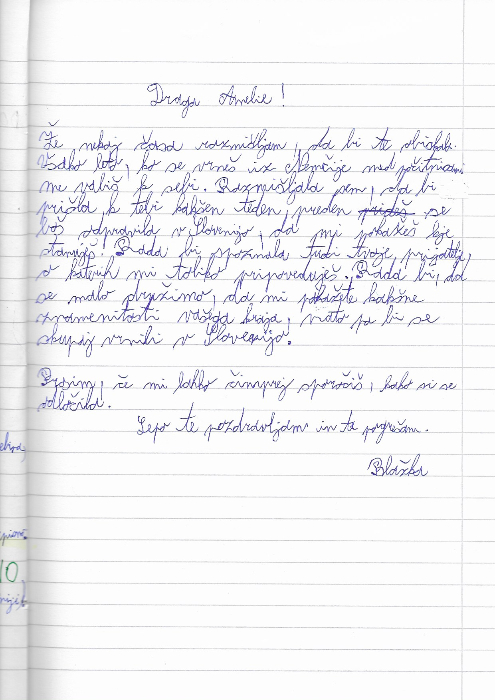 Draga Amelie!
Že nekaj časa razmišljam, da bi te obiskala.
Vsako leto, ko se vrneš iz Nemčije med počitnicami
me vabiš k sebi. Razmišljala sem, da bi
prišla k tebi kakšen teden, preden prideš se
boš odpravila v Slovenijo, da mi pokažeš kje
stanuješ. Rada bi spoznala tudi tvoje prijatelje,
o katerih mi toliko pripoveduješ. Rada bi, da
se malo družimo, da mi pokažete kakšne
znamenitosti vašega kraja, nato pa bi se
skupaj vrnili v Slovenijo.
Prosim, če mi lahko čimprej sporočiš, kako si se
odločila.
Lepo te pozdravljam in te pogrešam.
Blažka
10